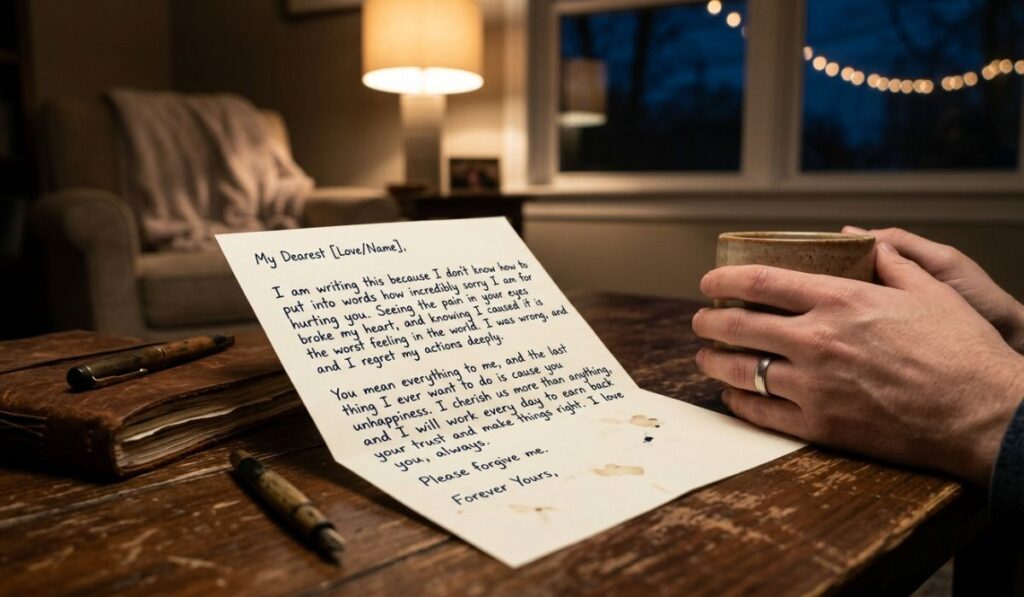 My Dearest [Love/Name],
I am writing this because I don't know how to
put into words how incredibly sorry I am for
hurting you. Seeing the pain in your eyes
broke my heart, and knowing I caused it is
the worst feeling in the world. I was wrong, and
and I regret my actions deeply.
You mean everything to me, and the last
thing I ever want to do is cause you
unhappiness. I cherish us more than anything,
and I will work every day to earn back
your trust and make things right. I love
you, always.
Please forgive me.
Forever Yours,